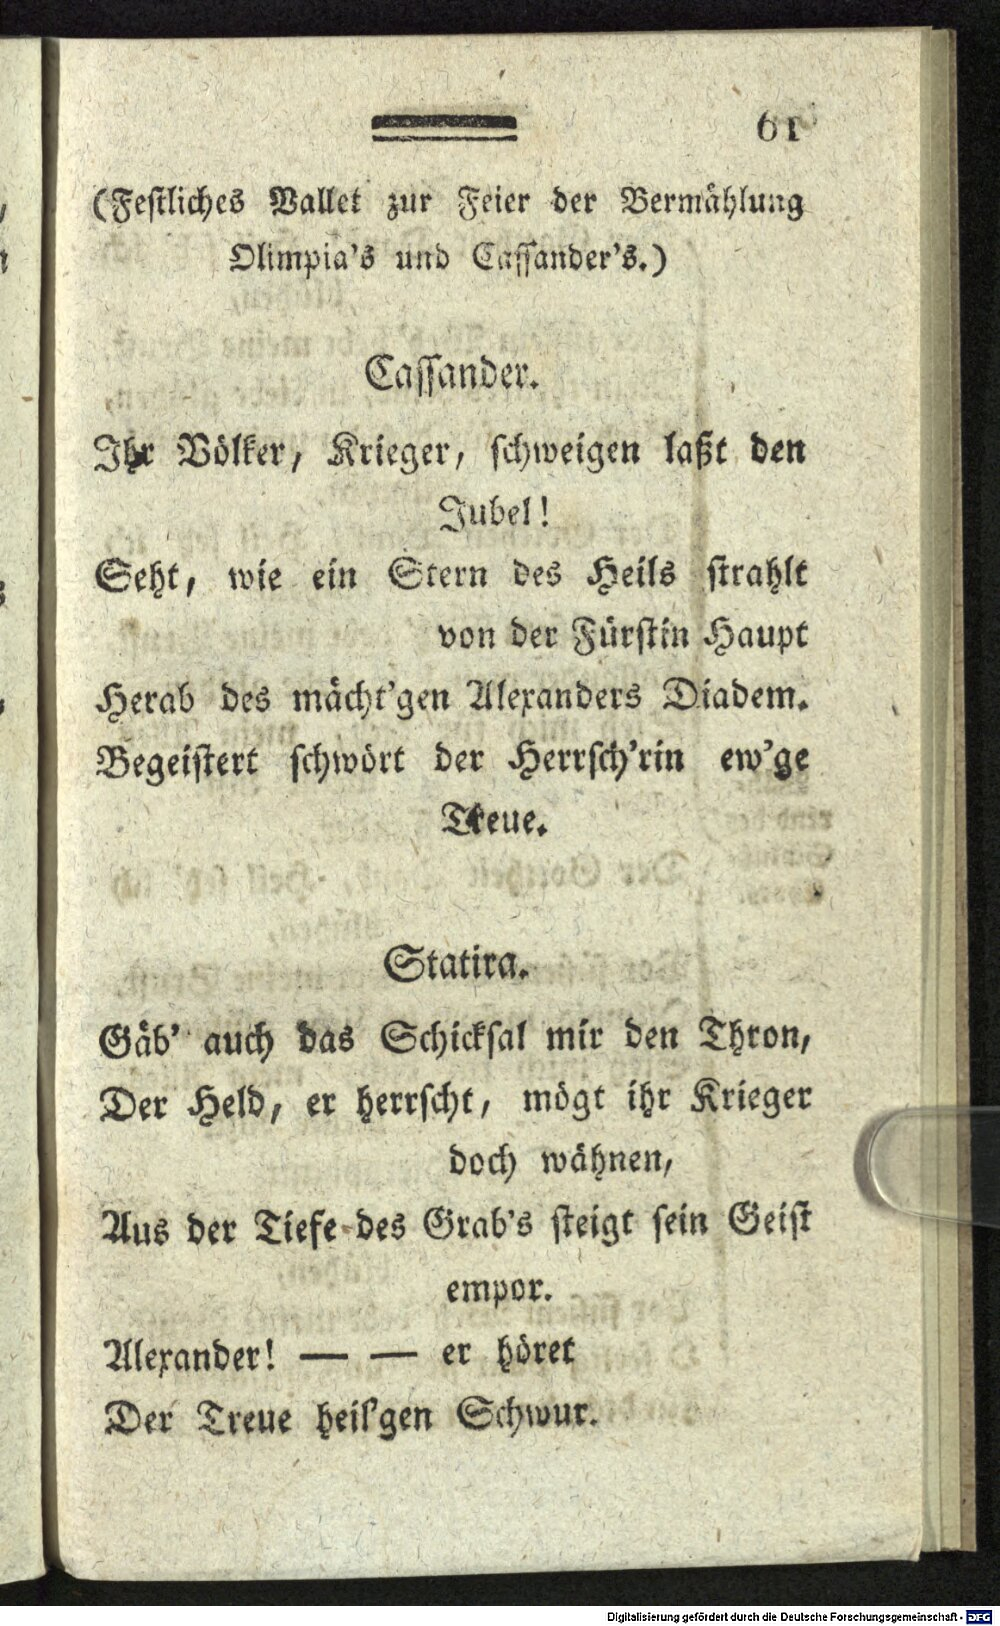 61
(Festliches Ballet zur Feier der Vermählung
Olimpia's und Cassander's.)
Cassander.
Ihr Völker, Krieger, schweigen laßt den
Jubel!
Seht, wie ein Stern des Heils strahlt
von der Fürstin Haupt
Herab des mächt'gen Alexanders Diadem.
Begeistert schwört der Herrsch'rin ew'ge
Treue.
Statira.
Gäb' auch das Schicksal mir den Thron,
Der Held, er herrscht, mögt ihr Krieger
doch wähnen,
Aus der Tiefe des Grab's steigt sein Geist
empor.
Alexander! — — er höret
Der Treue heil'gen Schwur.
Digitalisierung gefördert durch die Deutsche Forschungsgemeinschaft - DFG